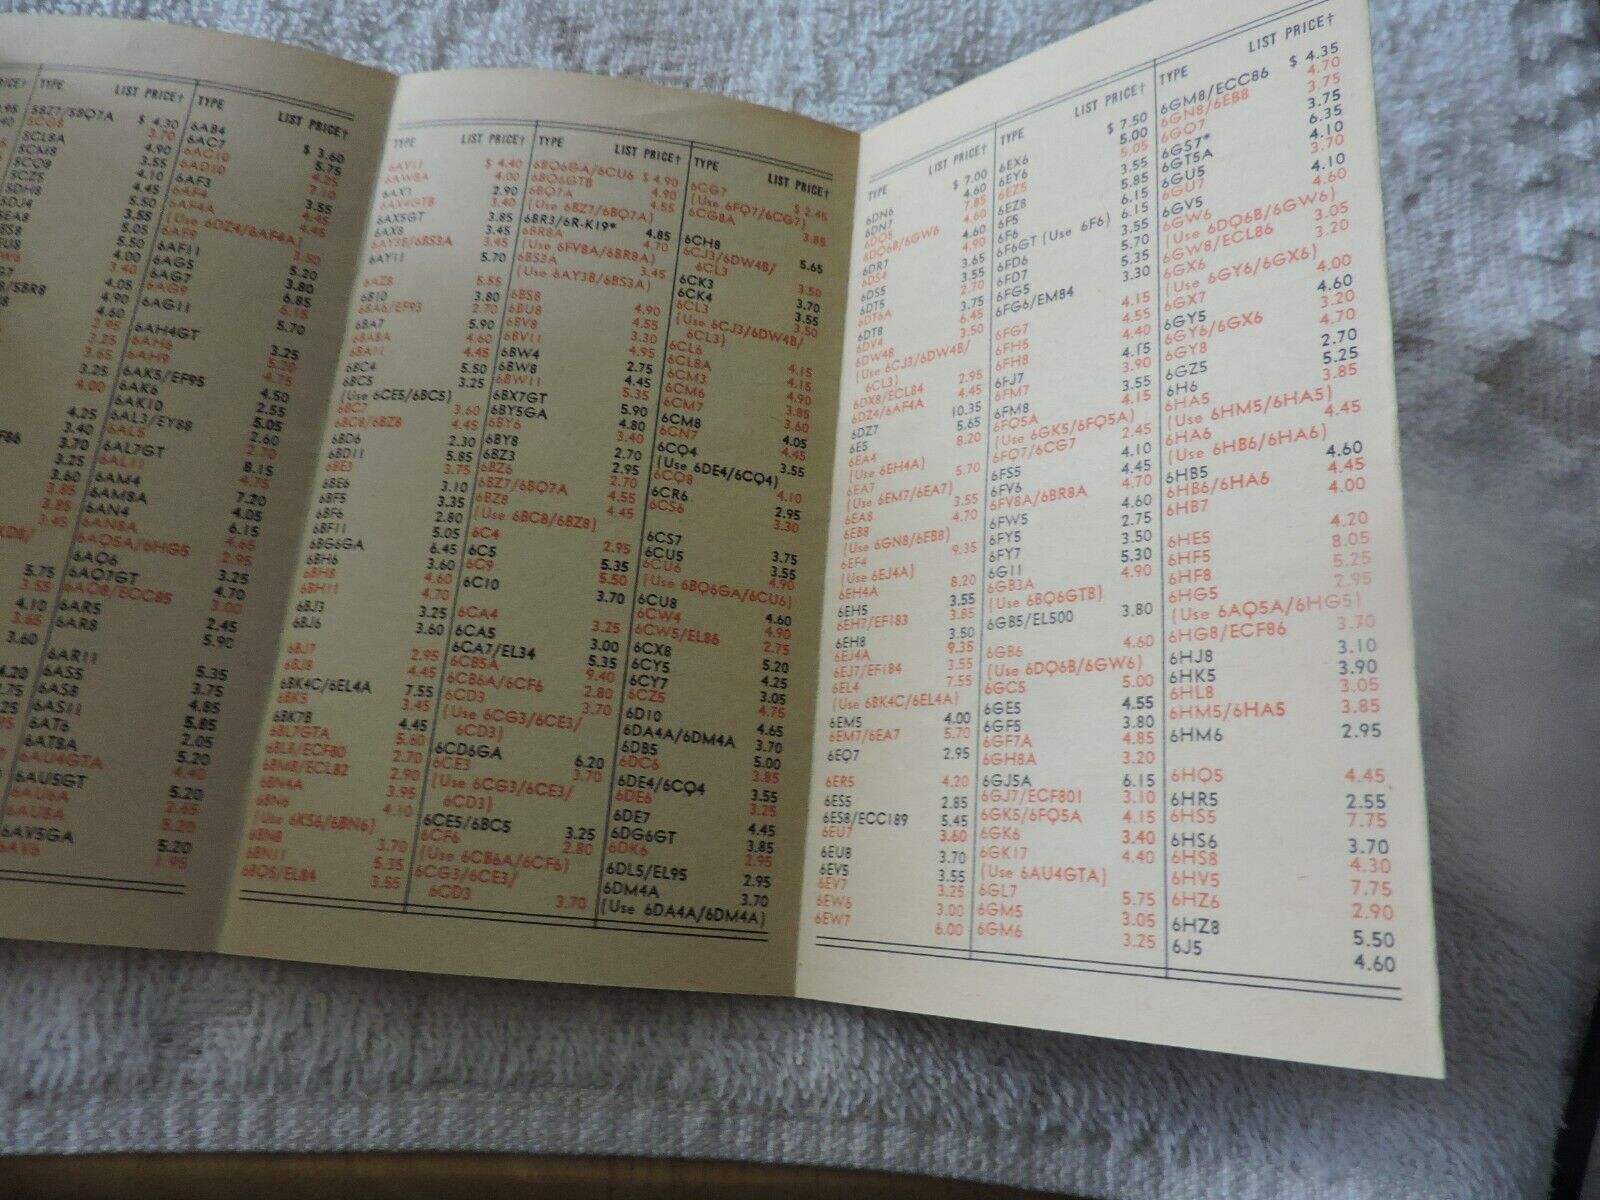 TYPE LIST PRICE†
5BZ7/5BQ7A $ 4.30
5CG8 3.70
5CL8A 4.90
5CM8
5CQ8
5CZ5
5DH8
5DJ4
TYPE LIST PRICE†
6AB4 $ 3.60
6AC7 5.75
6AC10 4.25
6AD10 7.10
6AF3 3.55
6AF4 4.45
6AF4A
(Use 6DZ4/6AF4A)
6AF9 3.50
6AF11 5.20
6AG5 3.80
6AG7 6.85
6AG9 6.15
6AG11 5.70
6AH4GT 3.25
6AH6 5.20
6AH9 4.75
6AK5/EF95 4.50
6AK6 2.55
6AK10 5.05
6AL3/EY88 2.60
6AL5 2.70
6AL7GT 8.15
6AL11 4.75
6AM4 7.20
6AM8A 4.05
6AN4 6.15
6AN8A 4.65
6AQ5A/6HG5 2.95
6AQ6 3.25
6AQ7GT 4.70
6AQ8/ECC85 3.00
6AR5 2.45
6AR8 5.90
6AR11 5.35
6AS5 3.75
6AS8 4.85
6AS11 5.85
6AT6 2.05
6AT8A 5.20
6AU4GTA 4.40
6AU5GT 5.20
6AU6A 2.65
6AU8A 5.20
6AV5GA 5.20
6AV6 1.95
TYPE LIST PRICE†
6AV11 $ 4.40
6AW8A 4.00
6AX3 2.90
6AX4GTB 3.40
6AX5GT 3.85
6AX8 3.45
6AY3B/6BS3A 3.45
6AY11 5.70
6AZ8 5.55
6B10 3.80
6BA6/EF93 2.70
6BA7 5.90
6BA8A 4.60
6BA11 4.45
6BC4 5.50
6BC5 3.25
(Use 6CE5/6BC5)
6BC7 3.60
6BC8/6BZ8 4.45
6BD6 2.30
6BD11 5.85
6BE3 3.75
6BE6 3.10
6BF5 3.35
6BF6 2.80
6BF11 5.05
6BG6GA 6.45
6BH6 3.60
6BH8 4.60
6BH11 4.70
6BJ3 3.25
6BJ6 3.60
6BJ7 2.95
6BJ8 4.45
6BK4C/6EL4A 7.55
6BK5 3.45
6BK7B 4.45
6BL7GTA 5.60
6BL8/ECF80 2.70
6BM8/ECL82 2.90
6BN4A 3.95
6BN6 4.10
(Use 6KS6/6BN6)
6BN8 3.70
6BN11 5.35
6BQ5/EL84 3.55
TYPE LIST PRICE†
6BQ6GA/6CU6 $ 4.90
6BQ6GTB 4.90
6BQ7A 4.55
(Use 6BZ7/6BQ7A)
6BR3/6R-K19* 4.85
6BR8A 4.70
(Use 6FV8A/6BR8A)
6BS3A 3.45
(Use 6AY3B/6BS3A)
6BS8 4.90
6BU8 4.55
6BV8 3.30
6BV11 4.95
6BW4 2.75
6BW8 4.45
6BW11 5.35
6BX7GT 5.90
6BY5GA 4.80
6BY6 3.40
6BY8 2.70
6BZ3 2.95
6BZ6 2.70
6BZ7/6BQ7A 4.55
6BZ8 4.45
(Use 6BC8/6BZ8)
6C4 2.95
6C5 5.35
6C9 5.50
6C10 3.70
6CA4 3.25
6CA5 3.00
6CA7/EL34 5.35
6CB5A 9.40
6CB6A/6CF6 2.80
6CD3 3.70
(Use 6CG3/6CE3/
6CD3)
6CD6GA 6.20
6CE3 3.70
(Use 6CG3/6CE3/
6CD3)
6CE5/6BC5 3.25
6CF6 2.80
(Use 6CB6A/6CF6)
6CG3/6CE3/
6CD3 3.70
TYPE LIST PRICE†
6CG7 $ 2.45
(Use 6FQ7/6CG7)
6CG8A 3.85
6CH8 5.65
6CJ3/6DW4B/
6CL3 3.50
6CK3 3.70
6CK4 3.55
6CL3 3.50
(Use 6CJ3/6DW4B/
6CL3)
6CL6 4.15
6CL8A 4.15
6CM3 4.90
6CM6 3.85
6CM7 3.60
6CM8 4.05
6CN7
6CQ4 3.55
(Use 6DE4/6CQ4)
6CQ8 4.10
6CR6 2.95
6CS6 3.30
6CS7 3.75
6CU5 3.55
6CU6 4.90
(Use 6BQ6GA/6CU6)
6CU8 4.60
6CW4 4.90
6CW5/EL86 2.75
6CX8 5.20
6CY5 4.25
6CY7 3.05
6CZ5 4.75
6D10 4.65
6DA4A/6DM4A 3.70
6DB5 5.00
6DC6 3.85
6DE4/6CQ4 3.55
6DE6 3.25
6DE7 4.45
6DG6GT 3.85
6DK6 2.95
6DL5/EL95 2.95
6DM4A 3.70
(Use 6DA4A/6DM4A)
TYPE LIST PRICE†
6DN6 $ 7.00
6DN7 4.60
6DQ5 7.85
6DQ6B/6GW6 4.60
6DR7 4.60
6DS4 4.90
6DS5 3.65
6DT5 3.55
6DT6A 2.70
6DT8 3.75
6DV4 6.45
6DW4B 3.50
(Use 6CJ3/6DW4B/
6CL3)
6DX8/ECL84 2.95
6DZ4/6AF4A 4.45
6DZ7 10.35
6E5 5.65
6EA4 8.20
(Use 6EH4A)
6EA7 5.70
(Use 6EM7/6EA7)
6EA8 3.55
6EB8 4.70
(Use 6GN8/6EB8)
6EF4 9.35
(Use 6EJ4A)
6EH4A 8.20
6EH5 3.55
6EH7/EF183 3.85
6EH8 3.50
6EJ4A 9.35
6EJ7/EF184 3.55
6EL4 7.55
(Use 6BK4C/6EL4A)
6EM5 4.00
6EM7/6EA7 5.70
6EQ7 2.95
6ER5 4.20
6ES5 2.85
6ES8/ECC189 5.45
6EU7 3.60
6EU8 3.70
6EV5 3.55
6EV7 3.25
6EW6 3.00
6EW7 6.00
TYPE LIST PRICE†
6EX6 $ 7.50
6EY6 5.00
6EZ5 5.05
6EZ8 3.55
6F5 5.85
6F6 6.15
6F6GT (Use 6F6) 6.15
6FD6 6.15
6FD7 5.70
6FG5 5.35
6FG6/EM84 3.30
6FG7 4.15
6FH5 4.55
6FH8 4.40
6FJ7 4.15
6FM7 3.90
6FM8 3.55
6FQ5A 4.15
(Use 6GK5/6FQ5A)
6FQ7/6CG7 2.45
6FS5 4.10
6FV6 4.45
6FV8A/6BR8A 4.70
6FW5 4.60
6FY5 2.75
6FY7 3.50
6G11 5.30
6GB3A 4.90
(Use 6BQ6GTB)
6GB5/EL500 3.80
6GB6 4.60
(Use 6DQ6B/6GW6)
6GC5 5.00
6GE5 4.55
6GF5 3.80
6GF7A 4.85
6GH8A 3.20
6GJ5A 6.15
6GJ7/ECF801 3.10
6GK5/6FQ5A 4.15
6GK6 3.40
6GK17 4.40
(Use 6AU4GTA)
6GL7 5.75
6GM5 3.05
6GM6 3.25
TYPE LIST PRICE†
6GM8/ECC86 $ 4.35
6GN8/6EB8 4.70
6GQ7 3.75
6GS7* 3.75
6GT5A 6.35
6GU5 4.10
6GU7 3.70
6GV5 4.10
6GW6 4.60
(Use 6DQ6B/6GW6)
6GW8/ECL86 3.05
6GX6 3.20
(Use 6GY6/6GX6)
6GX7 4.00
6GY5 4.60
6GY6/6GX6 3.20
6GY8 4.70
6GZ5 2.70
6H6 5.25
6HA5 3.85
(Use 6HM5/6HA5)
6HA6 4.45
(Use 6HB6/6HA6)
6HB5 4.60
6HB6/6HA6 4.45
6HB7 4.00
6HE5 4.20
6HF5 8.05
6HF8 5.25
6HG5 2.95
(Use 6AQ5A/6HG5)
6HG8/ECF86 3.70
6HJ8 3.10
6HK5 3.90
6HL8 3.05
6HM5/6HA5 3.85
6HM6 2.95
6HQ5 4.45
6HR5 2.55
6HS5 7.75
6HS6 3.70
6HS8 4.30
6HV5 7.75
6HZ6 2.90
6HZ8 5.50
6J5 4.60